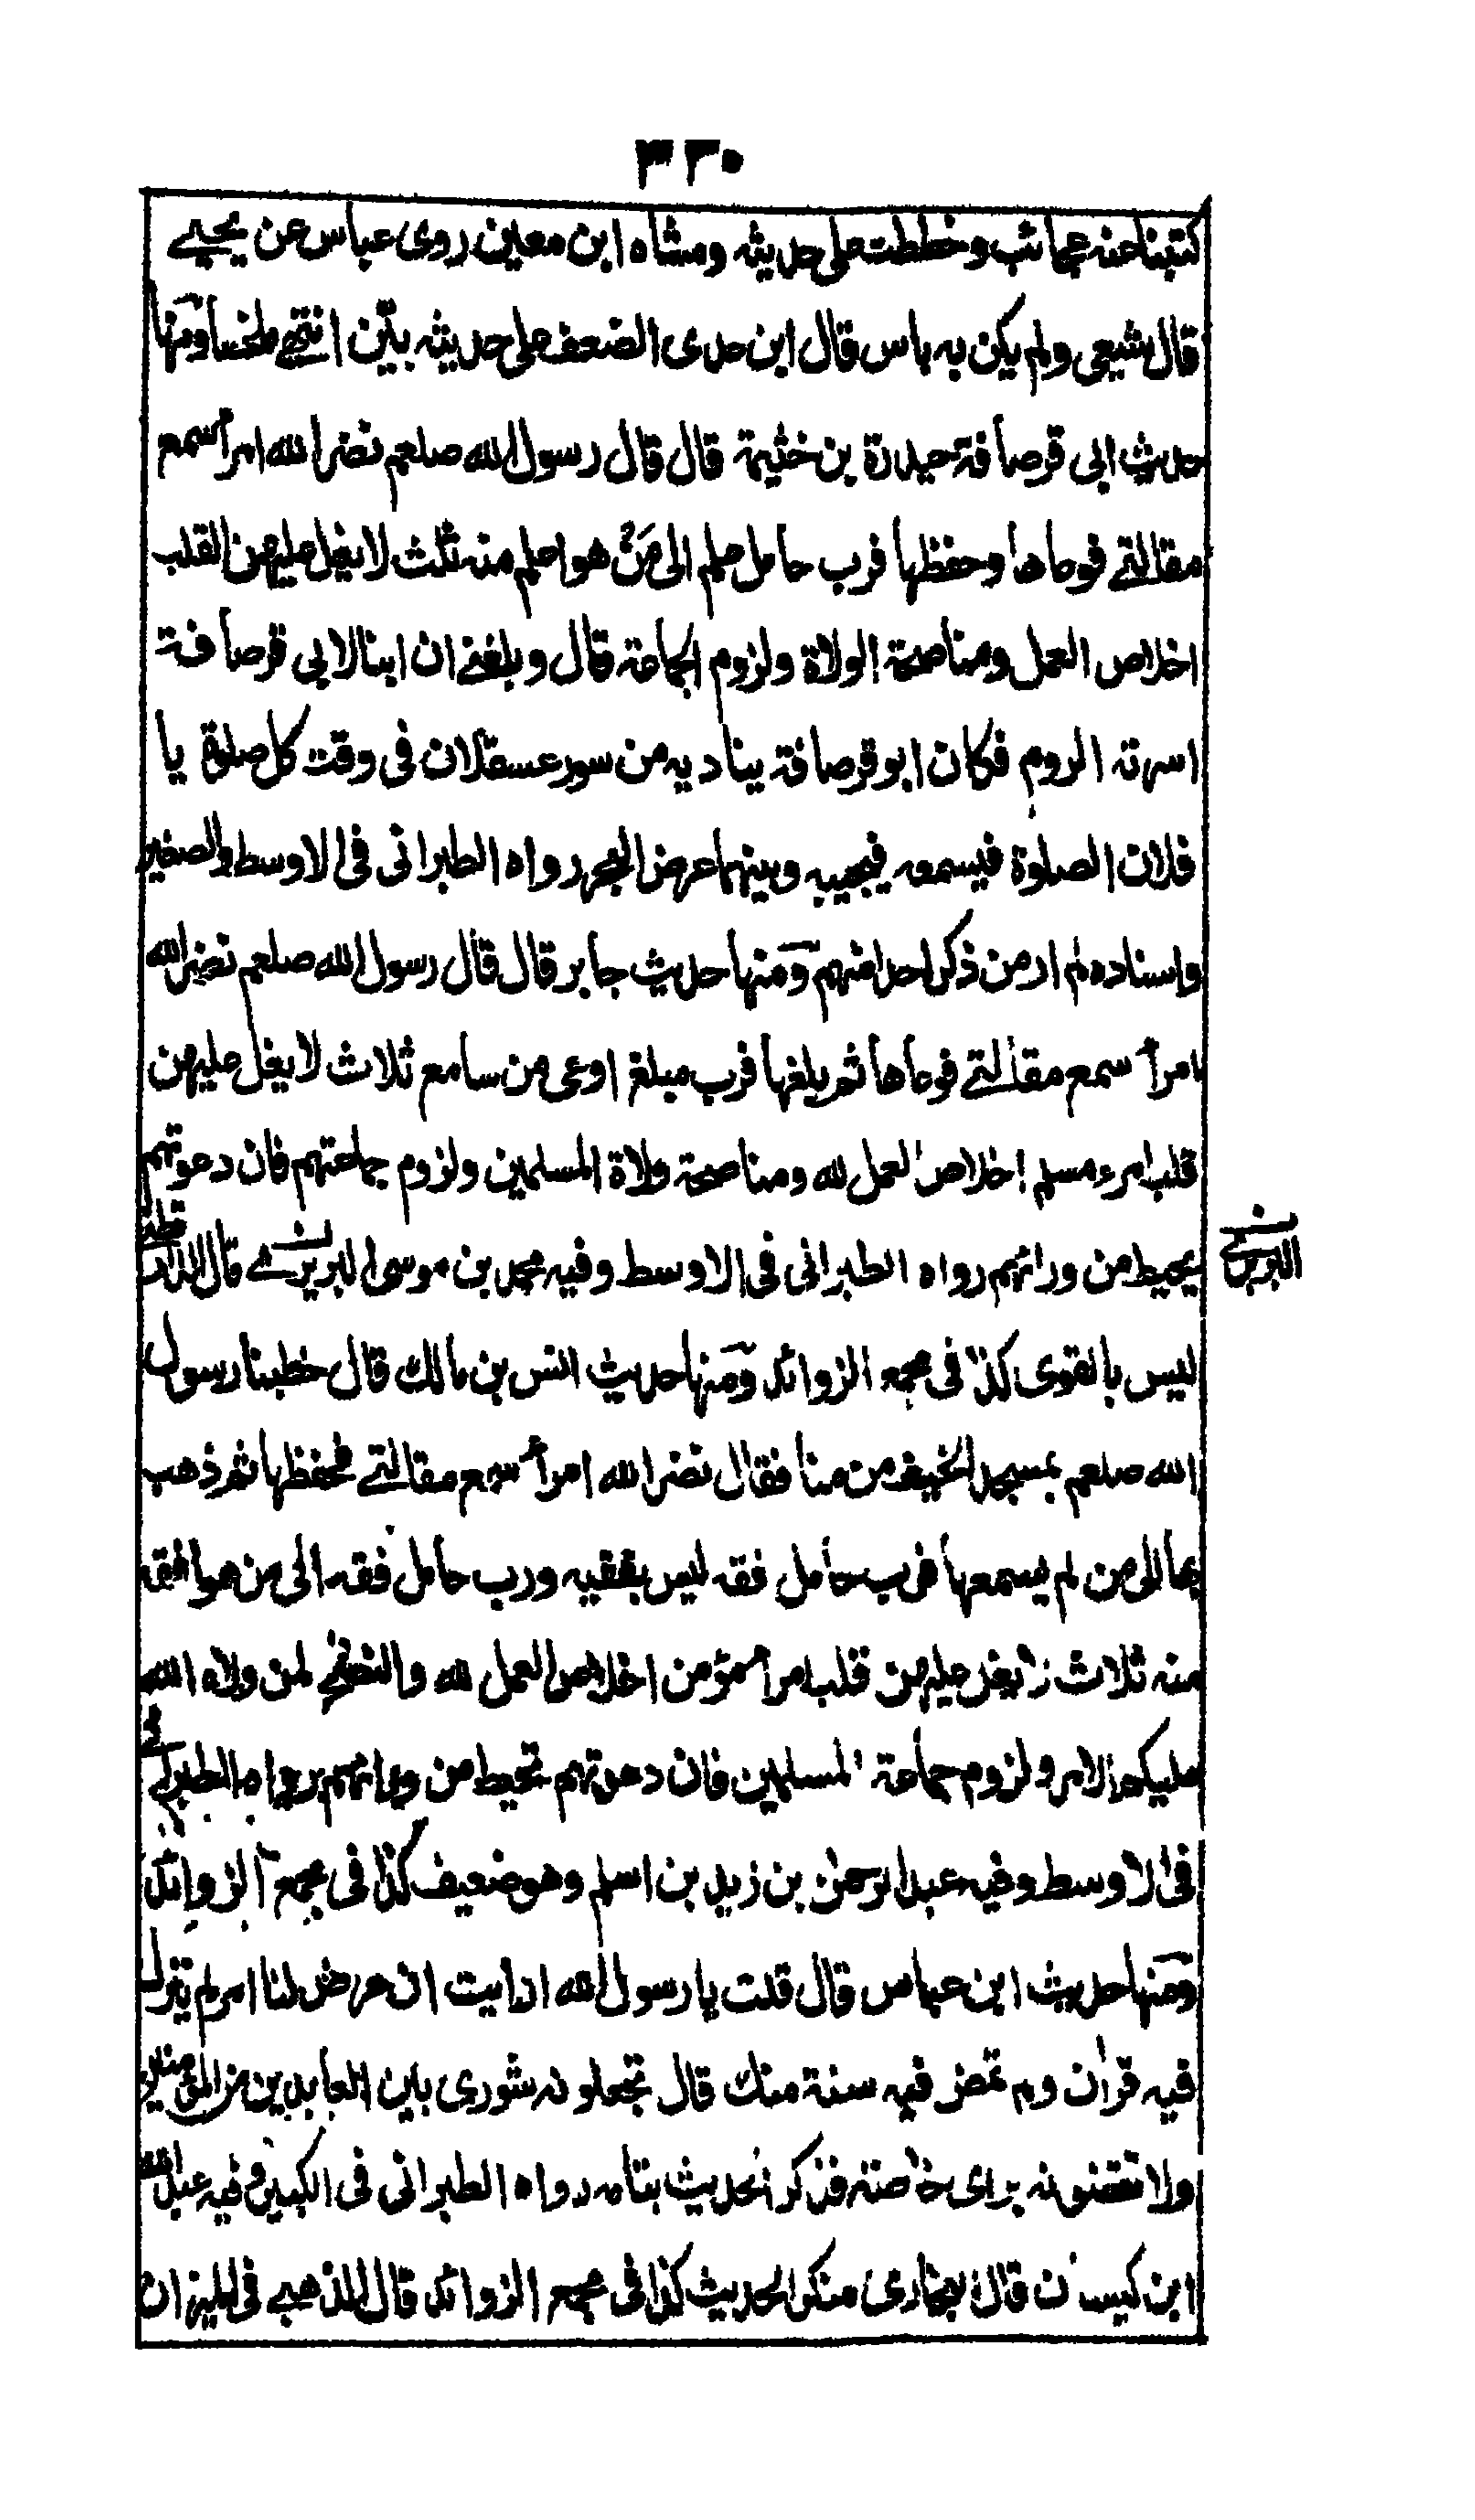 ٣٢٠
كتبنا عنه عجائب وخططت على حديثه ومشاه ابن معين روى عباس عن يحيے
قال شيعي ولم يكن به باس قال ابن عدى الضعف على حديثه بيّن انتهى ملخصا ومنها
حديث ابى قرصافة حيدرة بن خثيمة قال قال رسول الله صلعم نضر الله امرأ سمع
مقالتے فوعاها وحفظها فرب حامل علم الى مَنْ هو اعلم منه ثلث لا يغل عليهن القلب
اخلاص العمل ومناصحة الولاة ولزوم الجماعة قال وبلغنے ان ابنا لابى قرصافة
اسرته الروم فكان ابو قرصافة يناديه من سور عسقلان فى وقت كل صلوة يا
فلان الصلوة فيسمعه فيجيبه وبينهما عرض البحر رواه الطبرانى فى الاوسط والصغير
واسناده لم ار من ذكر احدا منهم ومنها حديث جابر قال قال رسول الله صلعم نضر الله
امرأ سمع مقالتے فوعاها ثم بلغها فرب مبلغ اوعى من سامع ثلاث لا يغل عليهن
قلب امرء مسلم اخلاص العمل لله ومناصحة ولاة المسلمين ولزوم جماعتهم فان دعوتهم
يحيط من ورائهم رواه الطبرانى فى الاوسط وفيه محمد بن موسى البربرے قال الدارقطنے
البربرى
ليس بالقوى كذا فى مجمع الزوائد ومنها حديث انس بن مالك قال خطبنا رسول
الله صلعم بمسجد الخيف من منا فقال نضر الله امرأ سمع مقالتے فحفظها ثم ذهب
بها الى من لم يسمعها فرب حامل فقه ليس بفقيه ورب حامل فقه الى من هو افقه
منه ثلاث لا يغل عليهن قلب امرأ مؤمن اخلاص العمل لله والنصح لمن ولاه الله
عليكم الامر ولزوم جماعة المسلمين فان دعوتهم تحيط من ورائهم رواه الطبرانے
فى الاوسط وفيه عبد الرحمن بن زيد بن اسلم وهو ضعيف كذا فى مجمع الزوائد
ومنها حديث ابن عباس قال قلت يا رسول الله ارايت ان عرض لنا امر لم ينزل
فيه قرأن ولم تمض فيه سنة منك قال تجعلونه شورى بين العابدين من المؤمنين
ولا تقضونه براى خاصة فذكر الحديث بتمامه رواه الطبرانى فى الكبير وفيه عبد الله
ابن كيسان قال البخارى منكر الحديث كذا فى مجمع الزوائد قال الذهبے فى الميزان